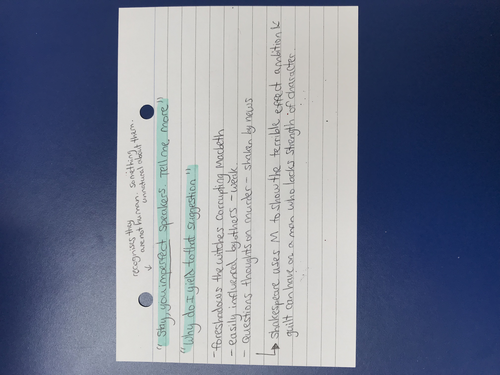 recognises they
are not human. something
unnatural about them.
"Stay, you imperfect speakers. Tell me more"
"Why do I yield to that suggestion"
- foreshadows the witches corrupting Macbeth
- easily influenced by others - weak
- Questions thoughts on murder - shaken by news
↳ Shakespeare uses M to show the terrible effect ambition &
guilt can have on a man who lacks strength of character.